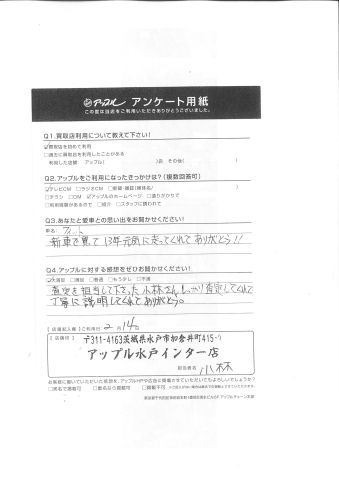 アップル アンケート用紙
この度は当店をご利用いただきありがとうございました。
Q1.買取店利用について教えて下さい!
☑買取店を初めて利用
□過去に買取店を利用したことがある
利用した店舗 アップル( )店 その他( )
Q2.アップルをご利用になったきっかけは?(複数回答可)
□ラジオCM □新聞・雑誌(媒体名/ )
□チラシ □DM ☑アップルのホームページ □通りがかりで
□利用経験があるので □紹介 □スタッフに誘われて
Q3.あなたと愛車との思い出をお聞かせください!
車名: フィット
新車で買って13年元気に走ってくれてありがとう!!
Q4.アップルに対する感想をぜひお聞かせください!
☑大満足 □満足 □普通 □もう少し □不満
査定を担当して下さった小林さん、しっかり査定してくれて
丁寧に説明してくれてありがとう。
【店舗記入欄】ご利用日/ 2月14日
【店舗印】 〒311-4163茨城県水戸市加倉井町415-
アップル水戸インター店
担当者名 小林
お客様に書いていただいた感想を、アップルHPや広告に掲載させていただいてもよろしいでしょうか?
□匿名で掲載可 □匿名なら掲載可 □掲載不可